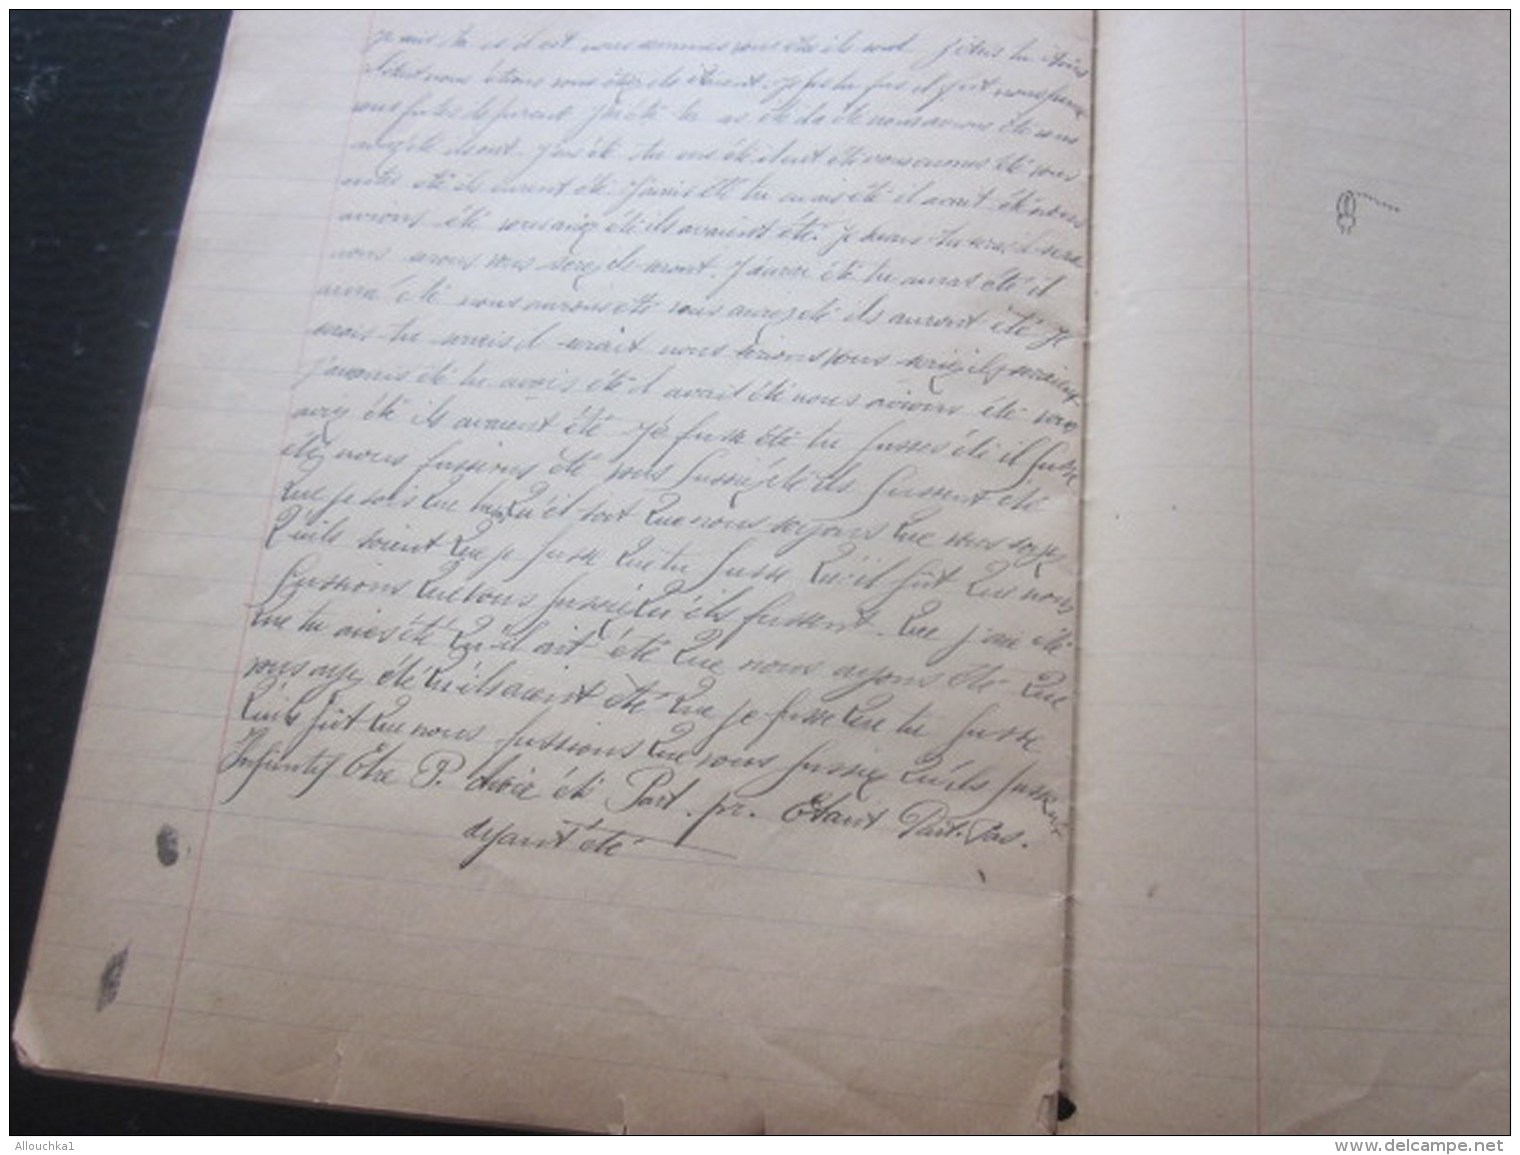 Je suis tu es il est nous sommes vous êtes ils sont J'étais tu étais
il était nous étions vous étiez ils étaient. Je fus tu fus il fut nous fumes
vous futes ils furent J'ai été tu as été il a été nous avons été vous
avez été ils ont. J'eus été tu eus été il eut été nous eumes été vous
eutes été ils eurent été. J'avais été tu avais été il avait été nous
avions été vous aviez été ils avaient été. Je serais tu seras il sera
nous serons vous serez ils seront. J'aurai été tu auras été il
aura été nous aurons été vous aurez été ils auront été Je
serais tu serais il serait nous serions vous seriez ils seraient
J'avais été tu avais été il avait été nous avions été vous
aviez été ils avaient été Je fusse été tu fusses été il fusse
été nous fussions été vous fussiez été ils fussent été
Que je sois Que tu Qu'il soit Que nous soyons Que vous soyez
Qu'ils soient Que je fusse Que tu fusse Qu'il fût Que nous
fussions Que vous fussiez Qu'ils fussent. Que j'aie été
Que tu aies été Qu'il ait été Que nous ayons été Que
vous ayez été Qu'ils aient été Que je fusse Que tu fusse
Qu'il fût Que nous fussions Que vous fussiez Qu'ils fussent
Infinitif Etre P. Avoir été Part. pr. Etant Part. Pas.
Ayant été
Allouchka1
www.delcampe.net